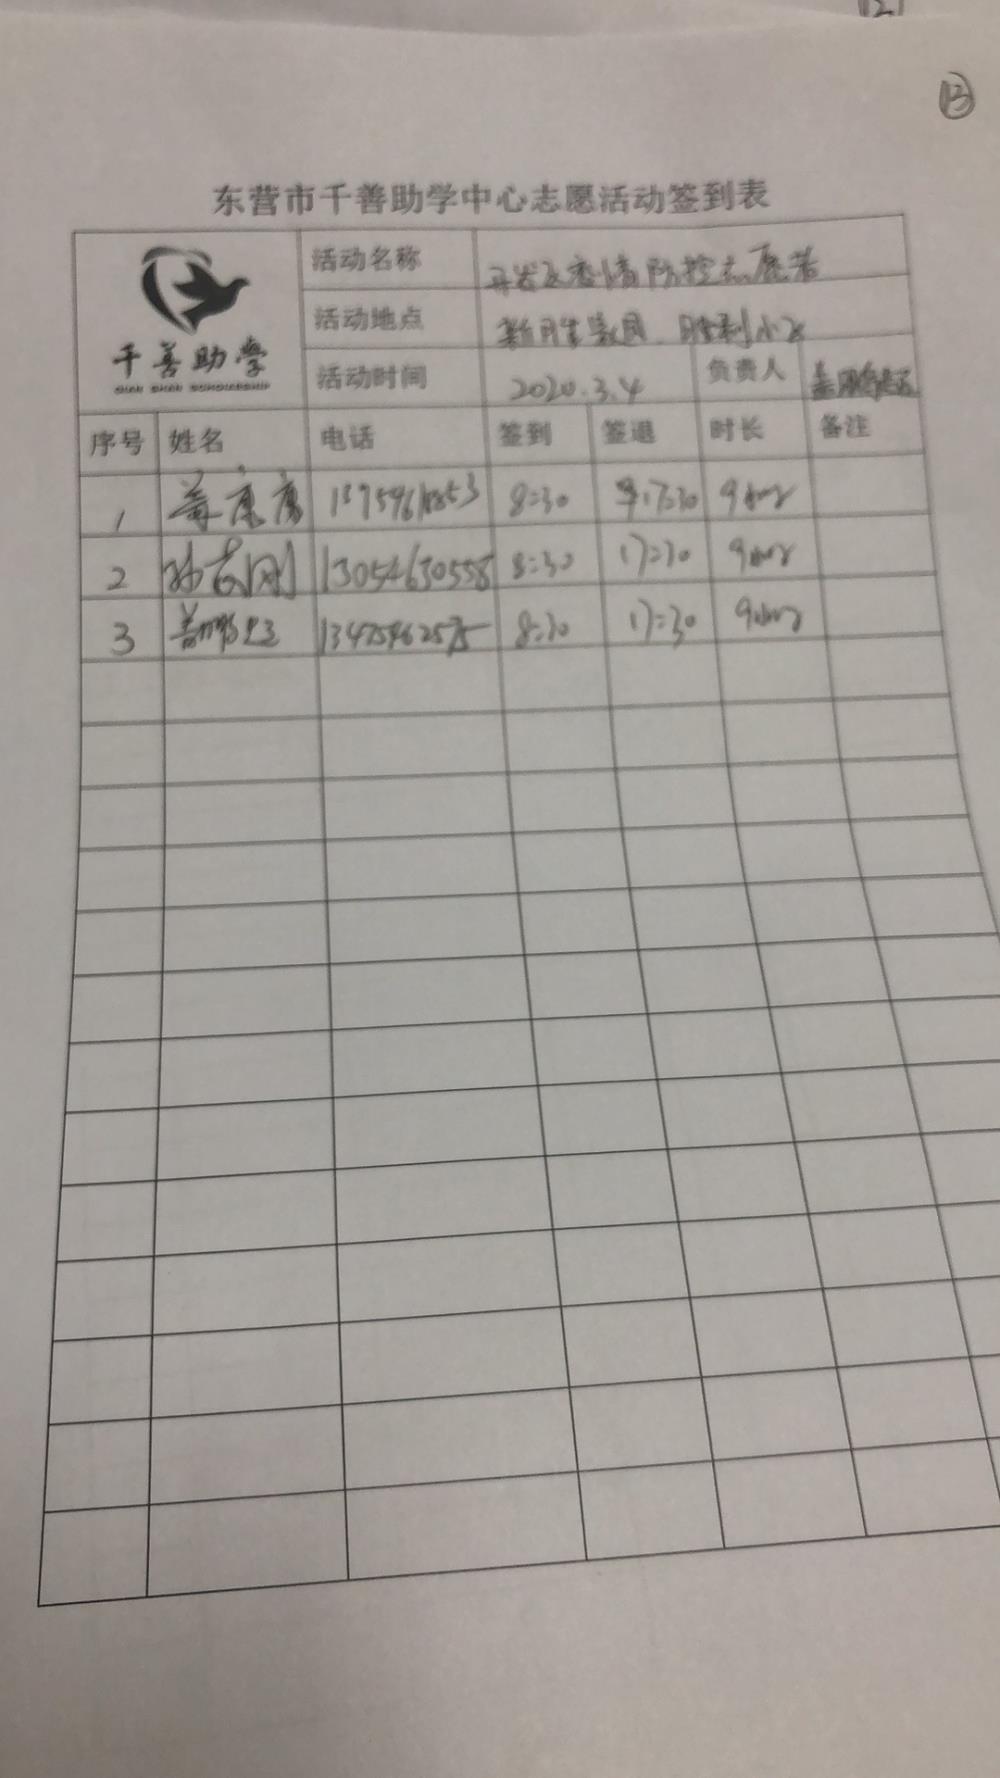 ⑬
东营市千善助学中心志愿活动签到表
千善助学
QIAN SHAN SCHOLARSHIP
活动名称 开发区疫情防控志愿者
活动地点 胜利小区
活动时间 2020.3.4 负责人
序号 姓名 电话 签到 签退 时长 备注
1 8:30 17:30 9
2 13054630558 8:30 17:30 9
3 8:30 17:30 9